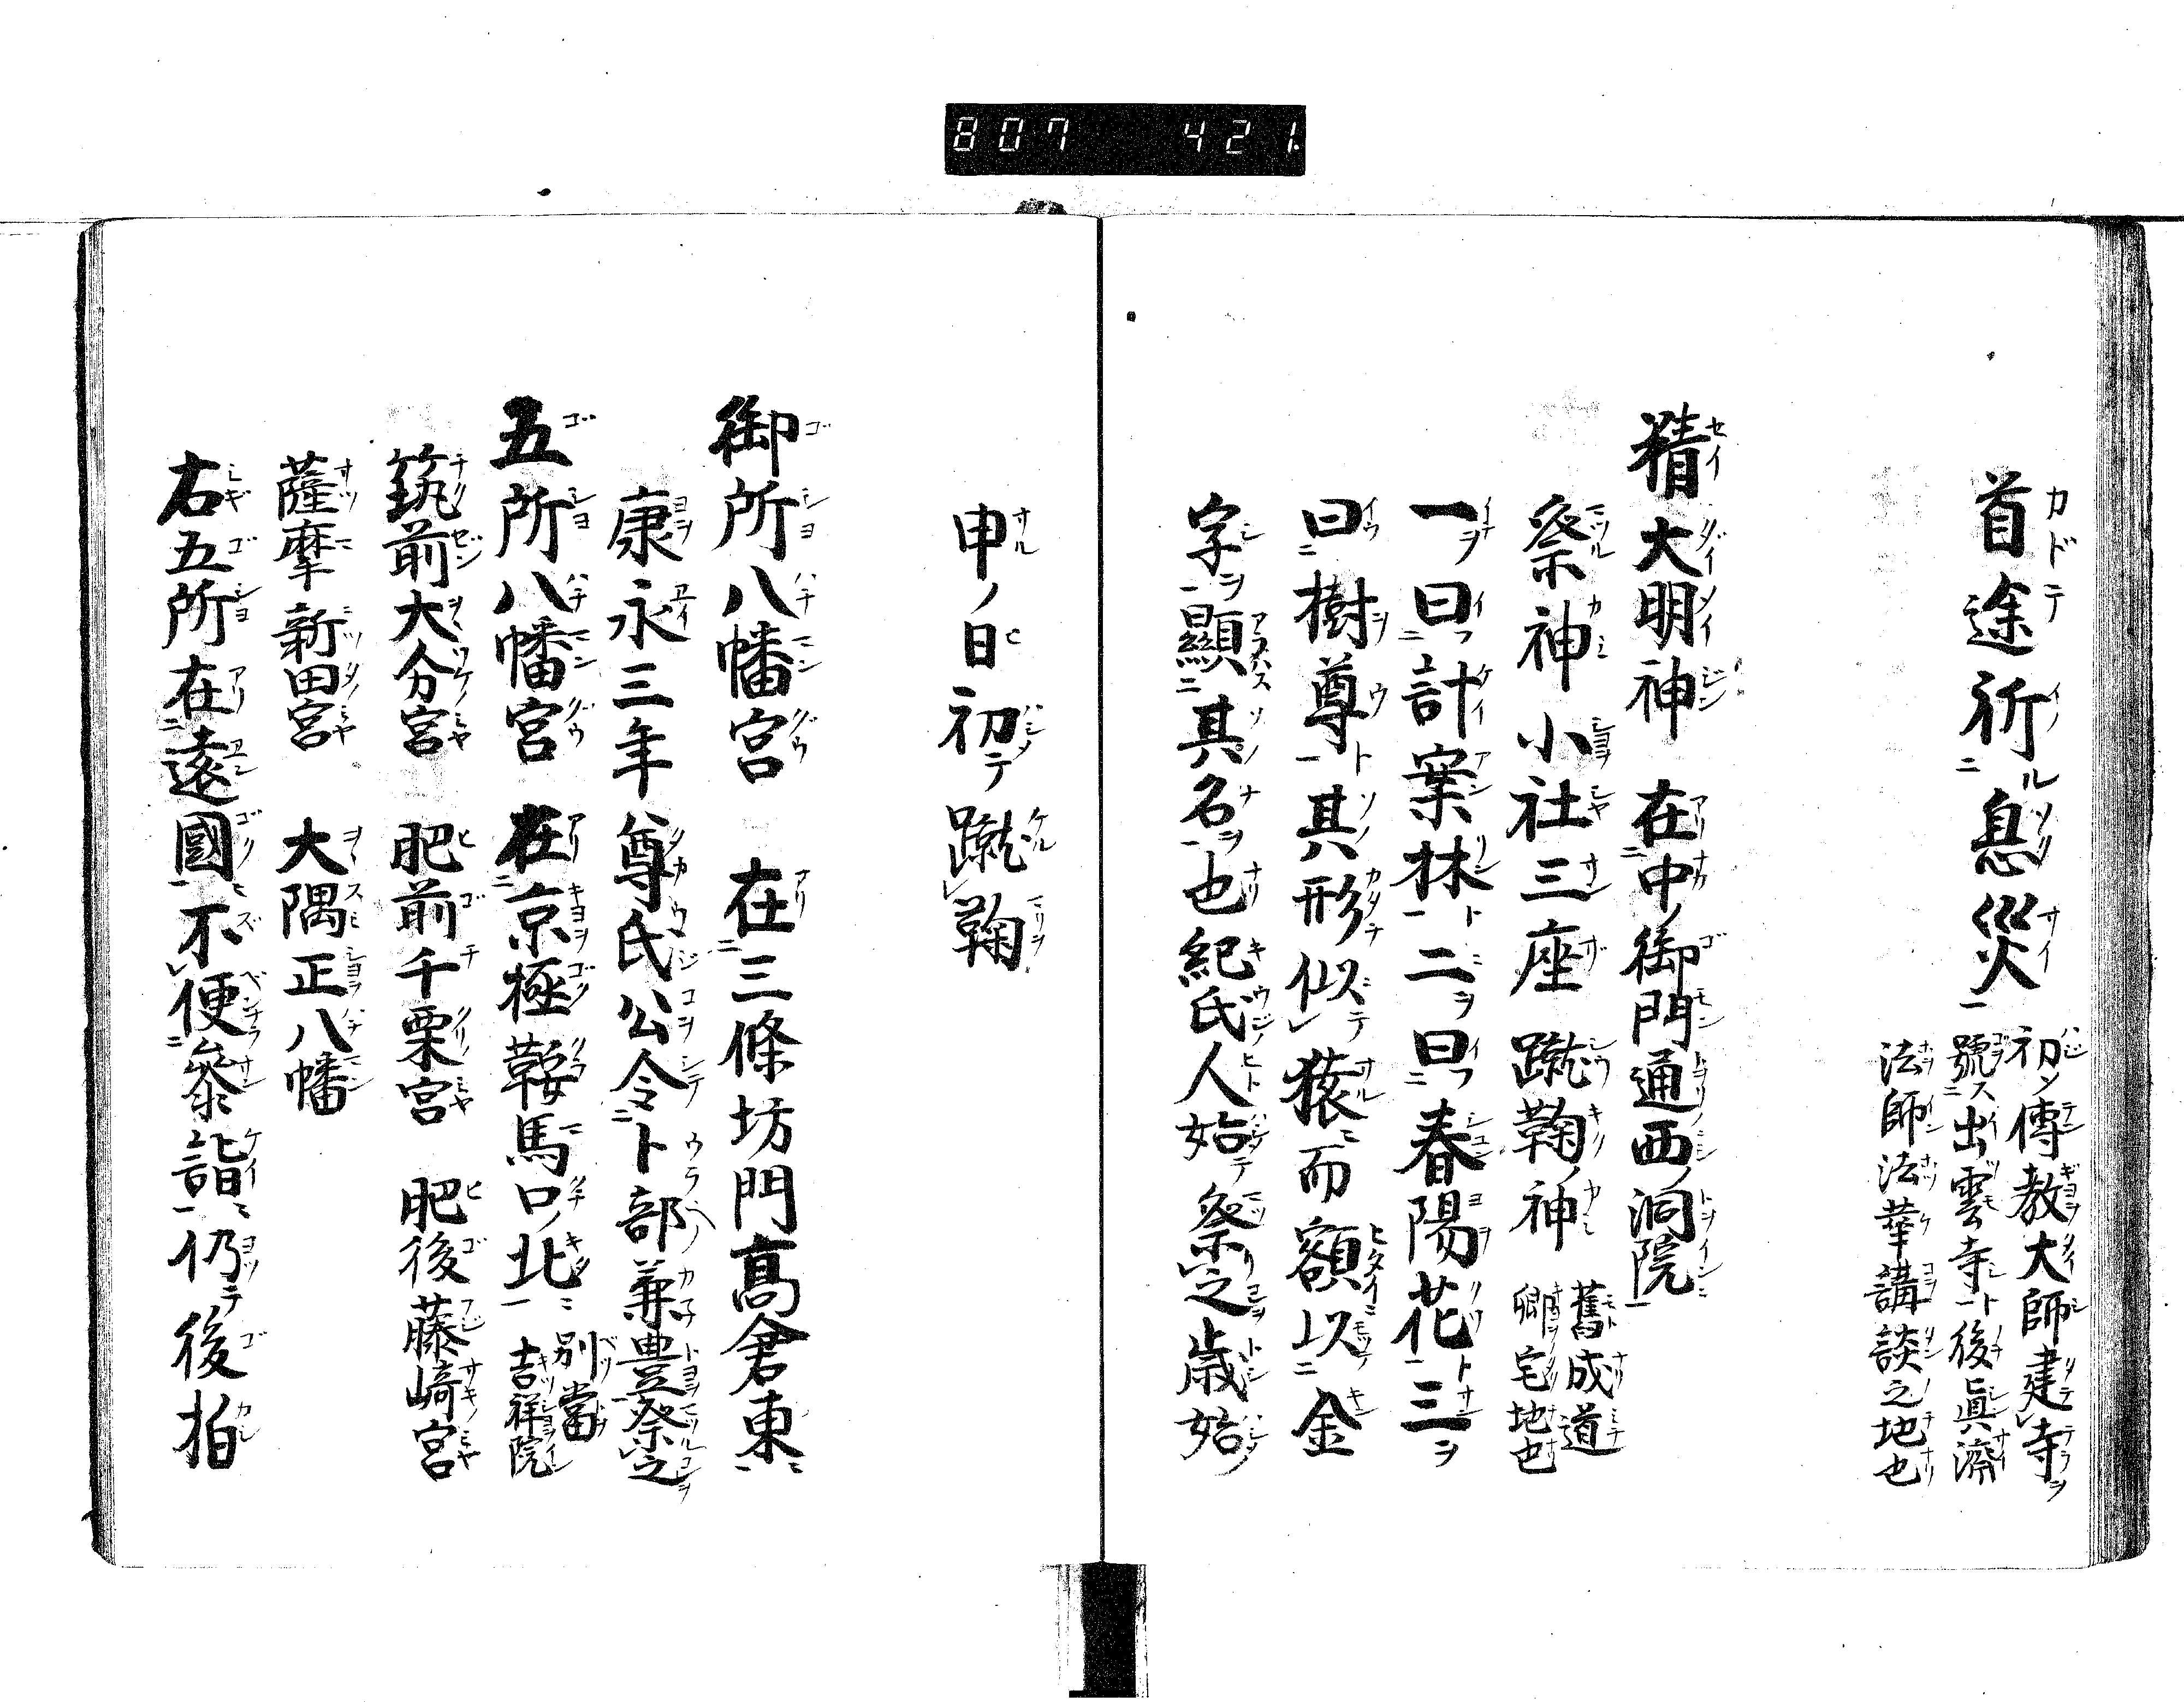 807 421
首途祈息災 初傳教大師建寺
號出雲寺後眞濟
法師法華講談之地也
精大明神 在中御門通西洞院
祭神小社三座 蹴鞠神 舊成道
卿宅地也
一曰計案林二曰春陽花三
曰樹尊其形似猿而額以金
字顯其名也紀氏人始祭之歳始
申ノ日初テ蹴鞠
御所八幡宮 在三條坊門髙倉東
康永三年尊氏公令卜部兼豊祭之
五所八幡宮 在京極鞍馬口北 別當
吉祥院
筑前大分宮 肥前千栗宮 肥後藤﨑宮
薩摩新田宮 大隅正八幡
右五所在遠國不便參詣仍後柏